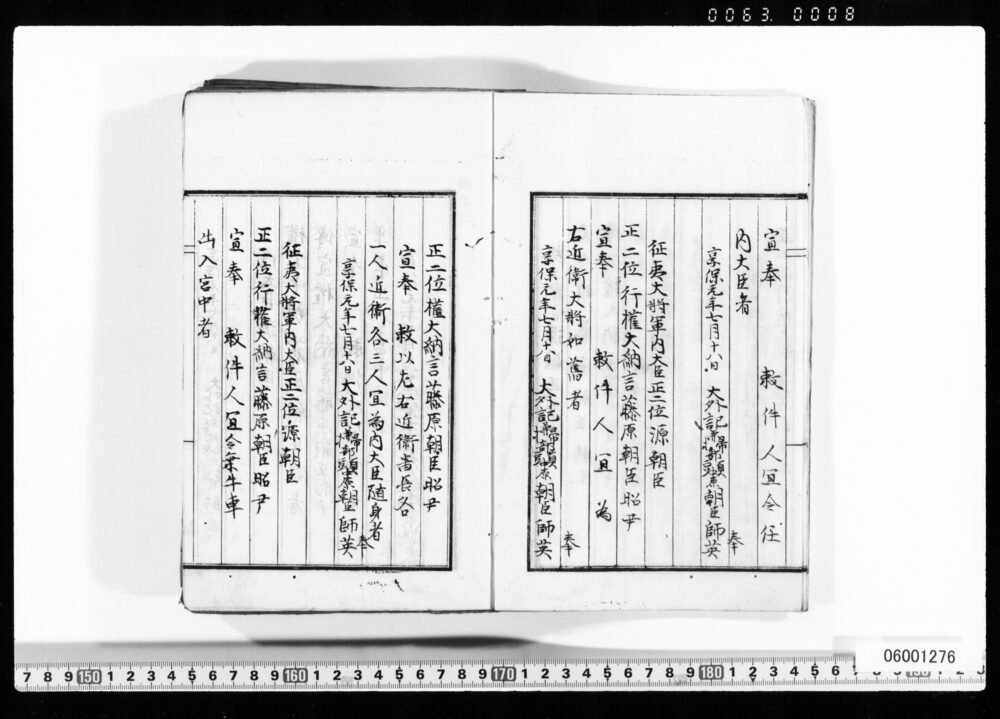 0063. 0008
宣奉　　敕件人宜令任
内大臣者
享保元年七月十八日　大外記兼掃部頭中原朝臣師英奉
征夷大將軍内大臣正二位源朝臣
正二位行權大納言藤原朝臣昭尹
宣奉　　敕件人宜為
右近衛大將如舊者
享保元年七月十八日　大外記兼掃部頭中原朝臣師英奉
正二位權大納言藤原朝臣昭尹
宣奉　敕以左右近衛番長各
一人近衛各三人宜為内大臣随身者
享保元年七月十八日　大外記兼掃部頭中原朝臣師英奉
征夷大將軍内大臣正二位源朝臣
正二位行權大納言藤原朝臣昭尹
宣奉　　敕件人宜令乗牛車
出入宮中者
06001276
7 8 9 150 1 2 3 4 5 6 7 8 9 160 1 2 3 4 5 6 7 8 9 170 1 2 3 4 5 6 7 8 9 180 1 2 3 4 5 6